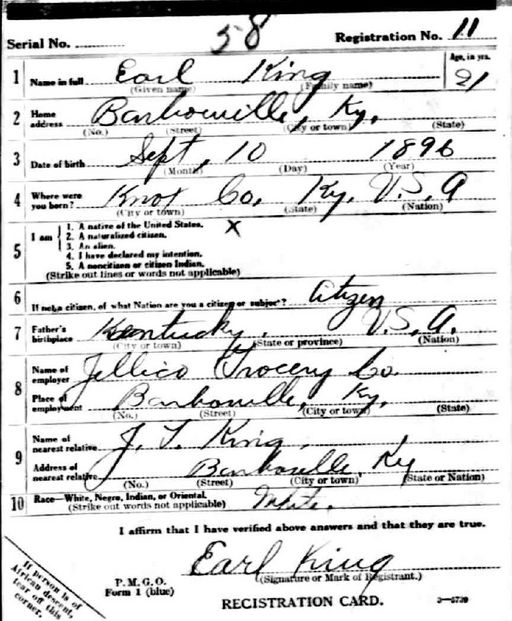 Serial No. 58 Registration No. 11
1 Name in full Earl King Age, in yrs. 21
(Given name) (Family name)
2 Home address Barbourville, Ky.
(No.) (Street) (City or town) (State)
3 Date of birth Sept. 10 1896
(Month) (Day) (Year)
4 Where were you born? Knox Co, Ky. U.S,A
(City or town) (State) (Nation)
5 I am
1. A native of the United States. X
2. A naturalized citizen.
3. An alien.
4. I have declared my intention.
5. A noncitizen or citizen Indian.
(Strike out lines or words not applicable)
6 If not a citizen, of what Nation are you a citizen or subject? Citizen
7 Father's birthplace Kentucky. U.S,A.
(City or town) (State or province) (Nation)
8 Name of employer Jellico Grocery Co
Place of employment Barbourville, Ky.
(No.) (Street) (City or town) (State)
9 Name of nearest relative J. T. King,
Address of nearest relative Barbourville, Ky
(No.) (Street) (City or town) (State or Nation)
10 Race—White, Negro, Indian, or Oriental. White.
(Strike out words not applicable)
I affirm that I have verified above answers and that they are true.
Earl King
(Signature or Mark of Registrant.)
P.M.G.O.
Form 1 (blue)
REGISTRATION CARD.
If person is of
African descent,
tear off this
corner.